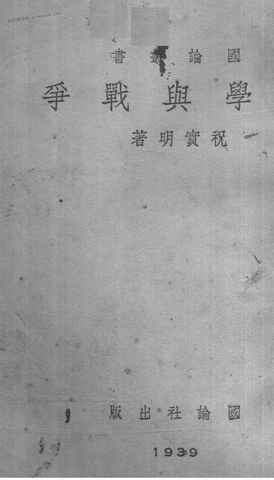 國論書
學與戰爭
祝實明著
國論社出版
1939